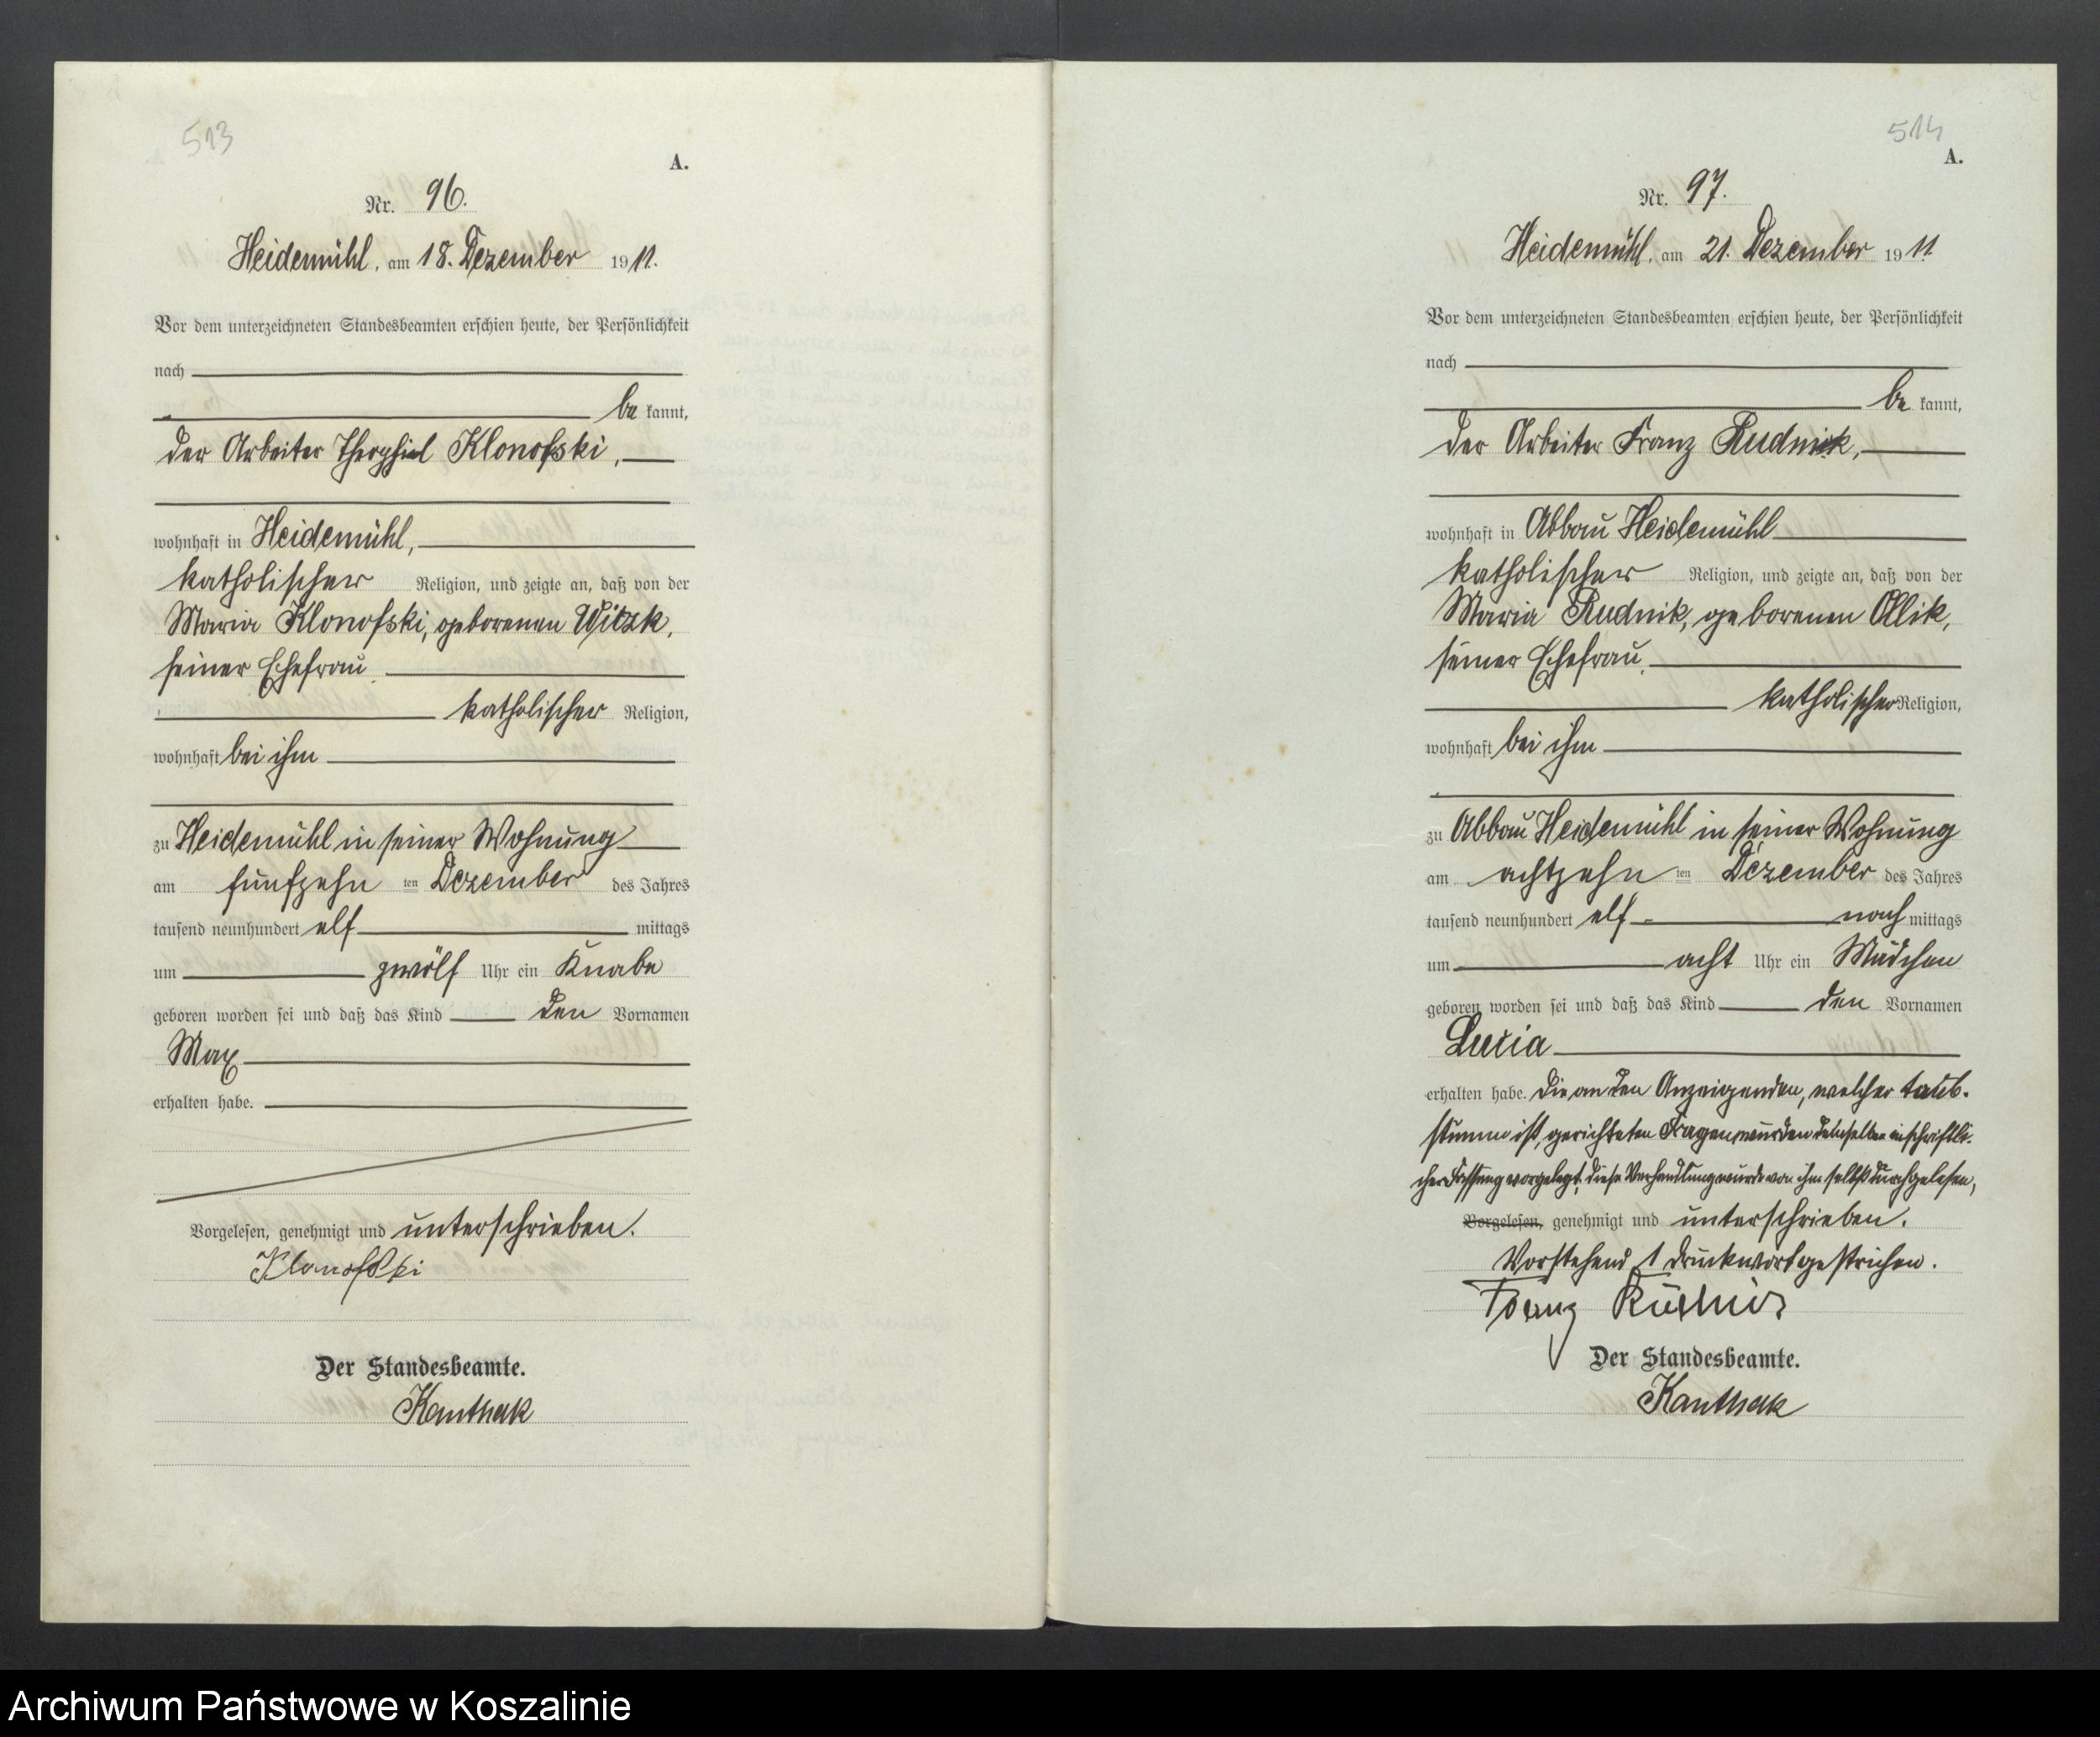 513
A.
Nr. 96.
Heidemühl, am 18. Dezember 1911.
Vor dem unterzeichneten Standesbeamten erschien heute, der Persönlichkeit
nach
be kannt,
der Arbeiter Theophiel Klonofski,
wohnhaft in Heidemühl,
katholischer Religion, und zeigte an, daß von der
Maria Klonofski, geborenen Witzk,
seiner Ehefrau,
katholischer Religion,
wohnhaft bei ihm
zu Heidemühl in seiner Wohnung
am fünfzehn ten Dezember des Jahres
tausend neunhundert elf mittags
um zwölf Uhr ein Knabe
geboren worden sei und daß das Kind den Vornamen
Max
erhalten habe.
Vorgelesen, genehmigt und unterschrieben.
Klonofski
Der Standesbeamte.
Kanthak
514
A.
Nr. 97.
Heidemühl, am 21. Dezember 1911
Vor dem unterzeichneten Standesbeamten erschien heute, der Persönlichkeit
nach
be kannt,
der Arbeiter Franz Rudnik,
wohnhaft in Abbau Heidemühl
katholischer Religion, und zeigte an, daß von der
Maria Rudnik, geborenen Ollik,
seiner Ehefrau,
katholischer Religion,
wohnhaft bei ihm
zu Abbau Heidemühl in seiner Wohnung
am achtzehn ten Dezember des Jahres
tausend neunhundert elf nach mittags
um acht Uhr ein Mädchen
geboren worden sei und daß das Kind den Vornamen
Lucia
erhalten habe. Die an den Anzeigenden, welcher taub-
stumm ist, gerichteten Fragen wurden demselben in schriftli-
cher Fassung vorgelegt, diese Verhandlung wurde von ihm selbst durchgelesen,
Vorgelesen, genehmigt und unterschrieben.
Vorstehend 1 Druckwort gestrichen.
Franz Rudnik
Der Standesbeamte.
Kanthak
Archiwum Państwowe w Koszalinie